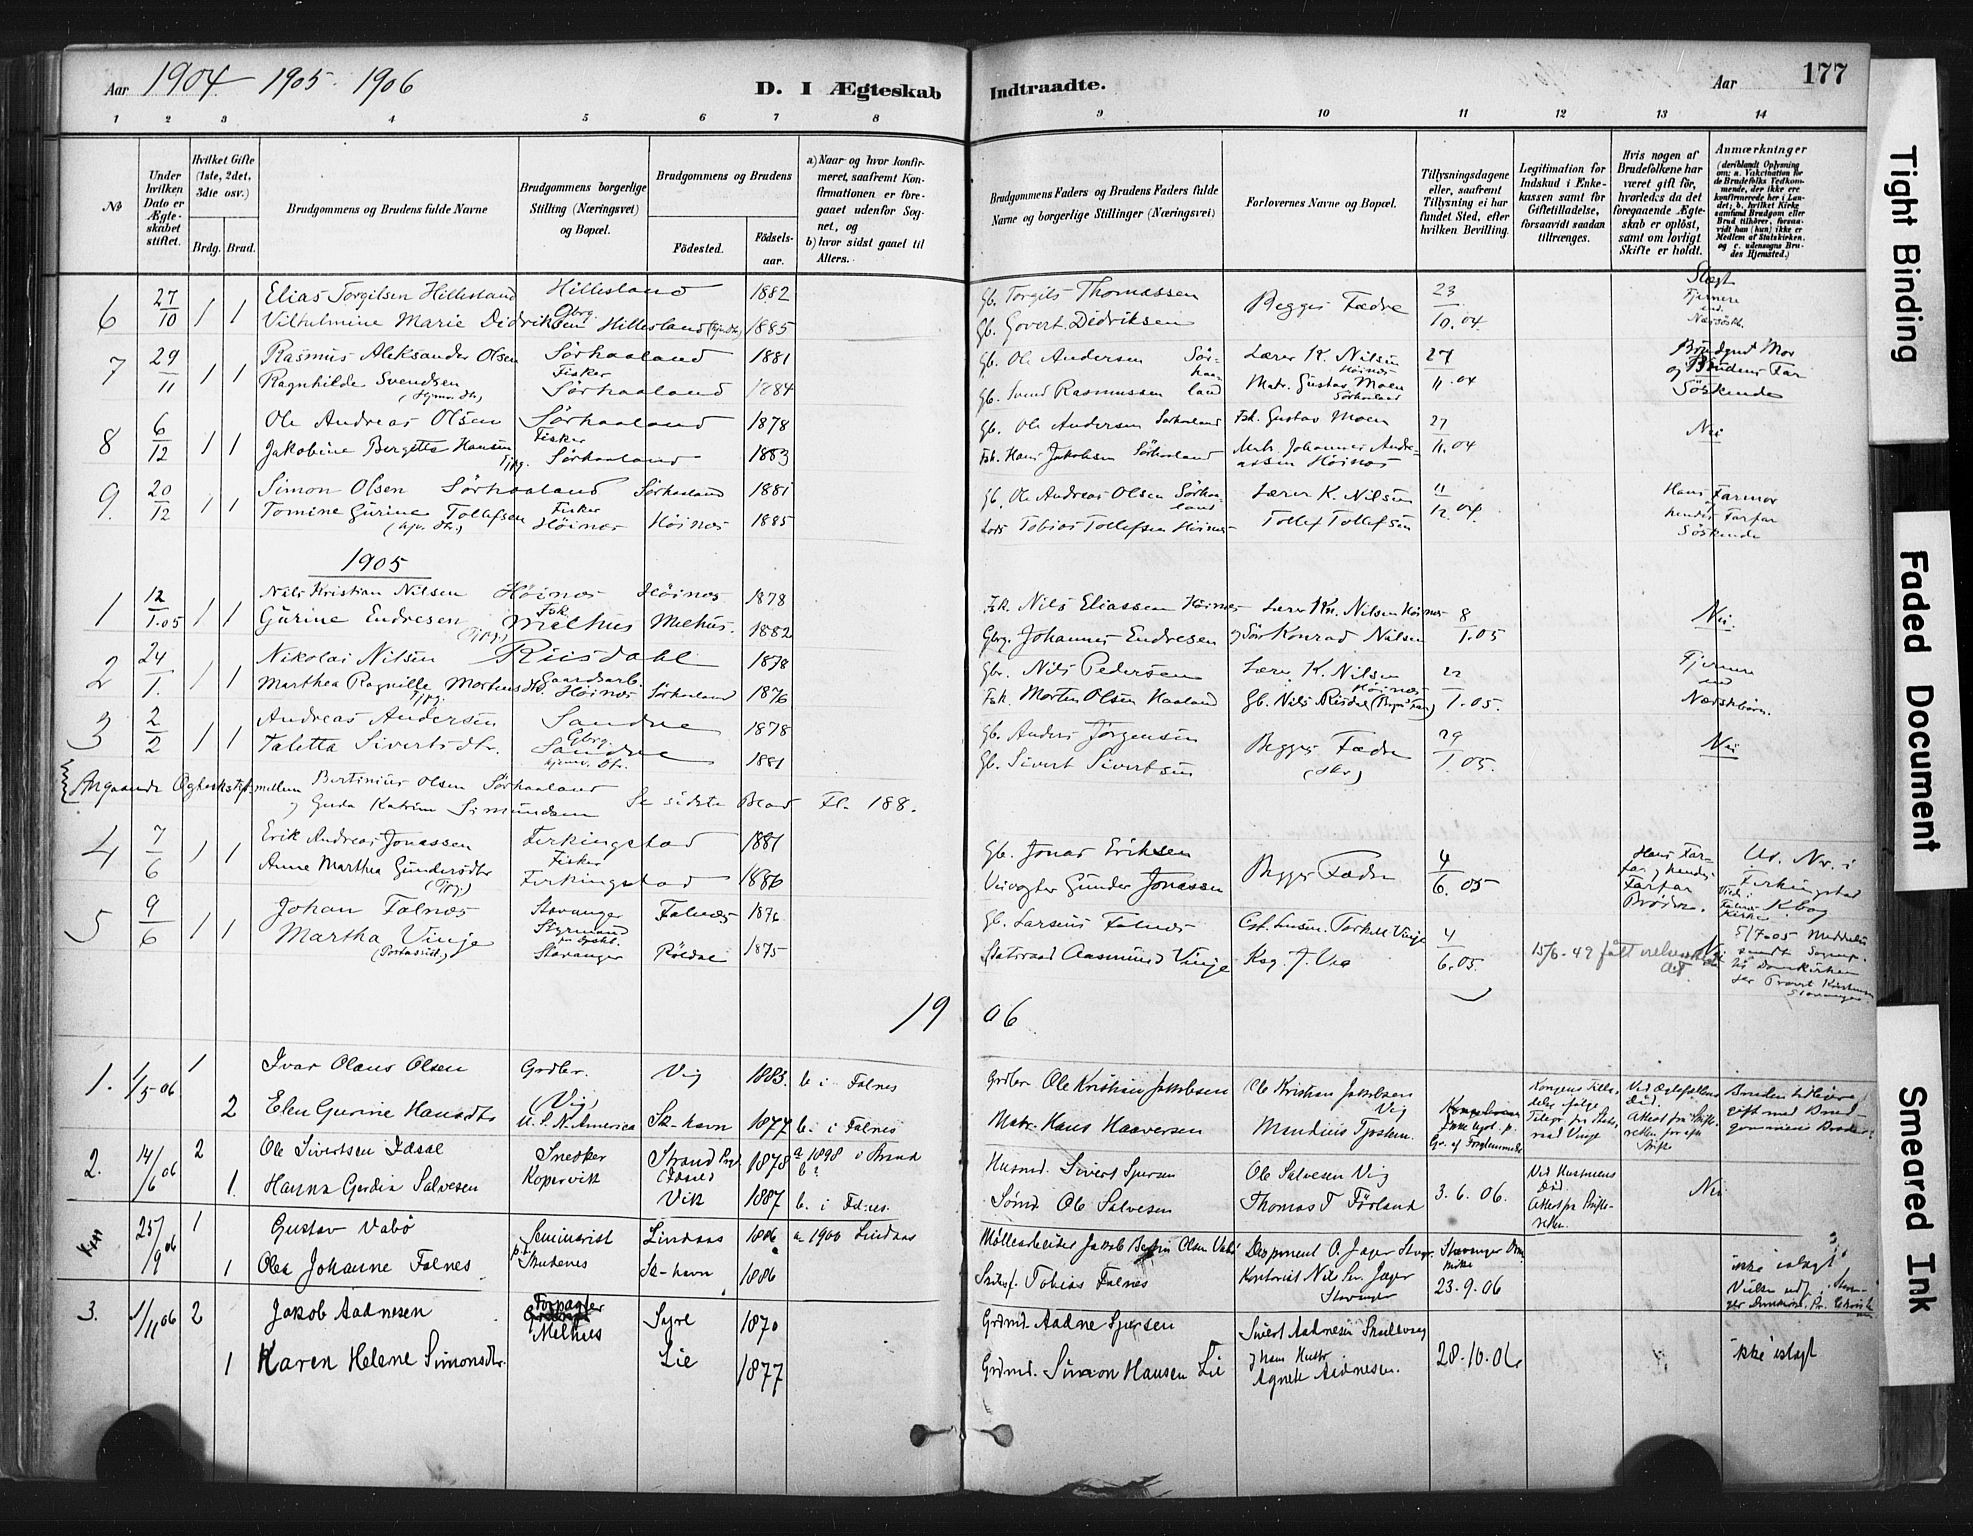 Aar 1904 1905 1906
D. I Ægteskab Indtraadte.
Aar 177
1 2 3 4 5 6 7 8 9 10 11 12 13 14
№
Under hvilken Dato er Ægteskabet stiftet.
Hvilket Gifte (1ste, 2det, 3die osv.)
Brdg. Brud.
Brudgommens og Brudens fulde Navne
Brudgommens borgerlige Stilling (Næringsvei) og Bopæl.
Brudgommens og Brudens
Födested. Födsels-aar.
a) Naar og hvor konfirmeret, saafremt Konfirmationen er foregaaet udenfor Sognet, og
b) hvor sidst gaaet til Alters.
Brudgommens Faders og Brudens Faders fulde Navne og borgerlige Stillinger (Næringsvei)
Forlovernes Navne og Bopæl.
Tillysningsdagene eller, saafremt Tillysning ei har fundet Sted, efter hvilken Bevilling.
Legitimation for Indskud i Enkekassen samt for Giftetilladelse, forsaavidt saadan tiltrænges.
Hvis nogen af Brudefolkene har været gift før, hvorledes da det foregaaende Ægteskab er opløst, samt om lovligt Skifte er holdt.
Anmærkninger
(deriblandt Oplysning om: a. Vakcination for de Brudefolks Vedkommende, der ikke ere konfirmerede her i Landet; b. hvilket Kirkesamfund Brudgom eller Brud tilhører, forsaavidt han (hun) ikke er Medlem af Statskirken, og c. udensogns Brudes Hjemsted.)
6 27/10 1 1 Elias Torgilsen Hillesland Hillesland 1882 Gb. Torgils Thomassen Begges Fædre 23/10.04 Slægt
Gbrg. Fjernere end
Vilhelmine Marie Didriksen Hillesland 1885 Gb. Govert Didriksen Næssøskb.
7 29/11 1 1 Rasmus Aleksander Olsen Sørhaaland 1881 Gb. Ole Andersen Sørhaaland Lærer K. Nilsen Høines 27/11.04 Brudgms Mor
Fisker og Brudens Far
Ragnhilde Svendsen Sørhaaland 1884 Gb. Svend Rasmussen Matr. Gustav Moen Sørhaaland Søskende
8 6/12 1 1 Ole Andreas Olsen Sørhaaland 1878 Gb. Ole Andersen Sørhaaland Fsk. Gustav Moen 27/11.04 Nei
Fisker
Jakobine Bergitte Hansen Tjpg. Sørhaaland 1883 Fsk. Hans Jakobsen Sørhaaland Matr. Johannes Andreassen Høines
9. 20/12 1 1 Simon Olsen Sørhaaland Sørhaaland 1881 Gb. Ole Andreas Olsen Sørhaaland Lærer K. Nilsen 11/12.04 Hans Farmor
Fisker hendes Farfar
Tomine Gurine Tollefsen Høines Høines 1885 Lods Tobias Tollefsen Høines Tollef Tollefsen Søskende
1905
1 12/1.05 1 1 Nils Kristian Nilsen Høines Høines 1878 Fsk. Nils Eliassen Høines Lærer Kr. Nilsen Høines 8/1.05 Nei.
Fsk.
Gurine Endresen (Tjpg.) Melhus Melhus. 1882 Gbrg. Johannes Endresen Konrad Nilsen
2 24/1. 1 1 Nikolai Nilsen Risdahl 1878 Gbr. Nils Pedersen Lærer K. Nilsen Høines 22/1.05. Fjernere
Gaardsarb. end
Marthea Ragnille Mortensd. Tjpg. Høines Sørhaaland 1876 Fsk. Morten Olsen Haaland Gb. Nils Risdal Næstskbørn.
3 2/2 1 1 Andreas Andersen Sandve 1878 Gb. Anders Jørgensen Begges Fædre 29/1.05. Nei
Gbrg.
Taletta Sivertsdtr. Sandve hjemv. Dtr. 1881 Gb. Sivert Sivertsen
Angaaende mellem Bertinius Olsen Sørhaaland
og Guda Katrine Simundsen Se sidste Blad Fl. 188.
4 7/6 1 1 Erik Andreas Jonassen Ferkingstad 1881 Gb. Jonas Eriksen Begges Fædre 4/6.05 Hans Farfar og hendes Farfar Brødre.
Fisker
Anne Marthea Gundersdtr (Tjpg.) Ferkingstad 1886 Gunder Jonassen Ferkingstad Kbog
5 9/6 1 1 Johan Falnes Stavanger Falnes 1876 Gb. Larsens Falnes Torkell Vinje 4/6.05. Viet i Falnes Kirke
Styrmand
Martha Vinje Stavanger Røldal 1875 Statsraad Aasmund Vinje 15/6-49 Nei 5/7-05
Domkirken Stavanger
1906
1. 1/5 06 1 Ivar Olaus Olsen Grdbr. Vig 1883. b. i Falnes Grdbr Ole Kristian Jakobsen Ole Kristian Jakobsen Vig Kongens Tilladelse ifølge Telegr. fra Statsraad Vinje Ved Ægtefællens Død. Attest fra Skifteretten
2 Elen Gurine Hansdtr (Vig) U.S.N. America Sk-havn 1877 b. i Falnes Matr. Hans Haaversen
2. 14/6 06 2 Ole Sivertsen Idsal Snedker Strand 1878 a 1898 i Strand b? Husmd. Sivert Sjursen Ole Salvesen Vig 3.6.06. Ved Hustruens Død Attest fra Skifteretten. Nei
1. Hanna Gerdia Salvesen Kopervik Vik 1887 b. i Falnes. Sømd. Ole Salvesen Thomas T Førland
25/9 06 1 Gustav Vabø Seminarist Lindaas 1886 a 1900 Lindaas Møllearbeider Jakob Olsen Vabø Disponent O. Jæger Stvgr. Stavanger
1 Olea Johanne Falnes p.t. Skudenes Sk-havn 1886 Tobias Falnes Kontorist Jæger Stavanger 23.9.06 ikke islagt
3. 1/11 06 2 Jakob Aadnesen Forpagter Melhus Syre 1870 Grdmd. Aadne Sjursen Sivert Aadnesen
1 Karen Helene Simonsdtr. Lie 1877 Grdmd. Simon Hansen Lie og hans Hustr. Agnete Aadnesen. 28.10.06 ikke islagt
Tight Binding
Faded Document
Smeared Ink